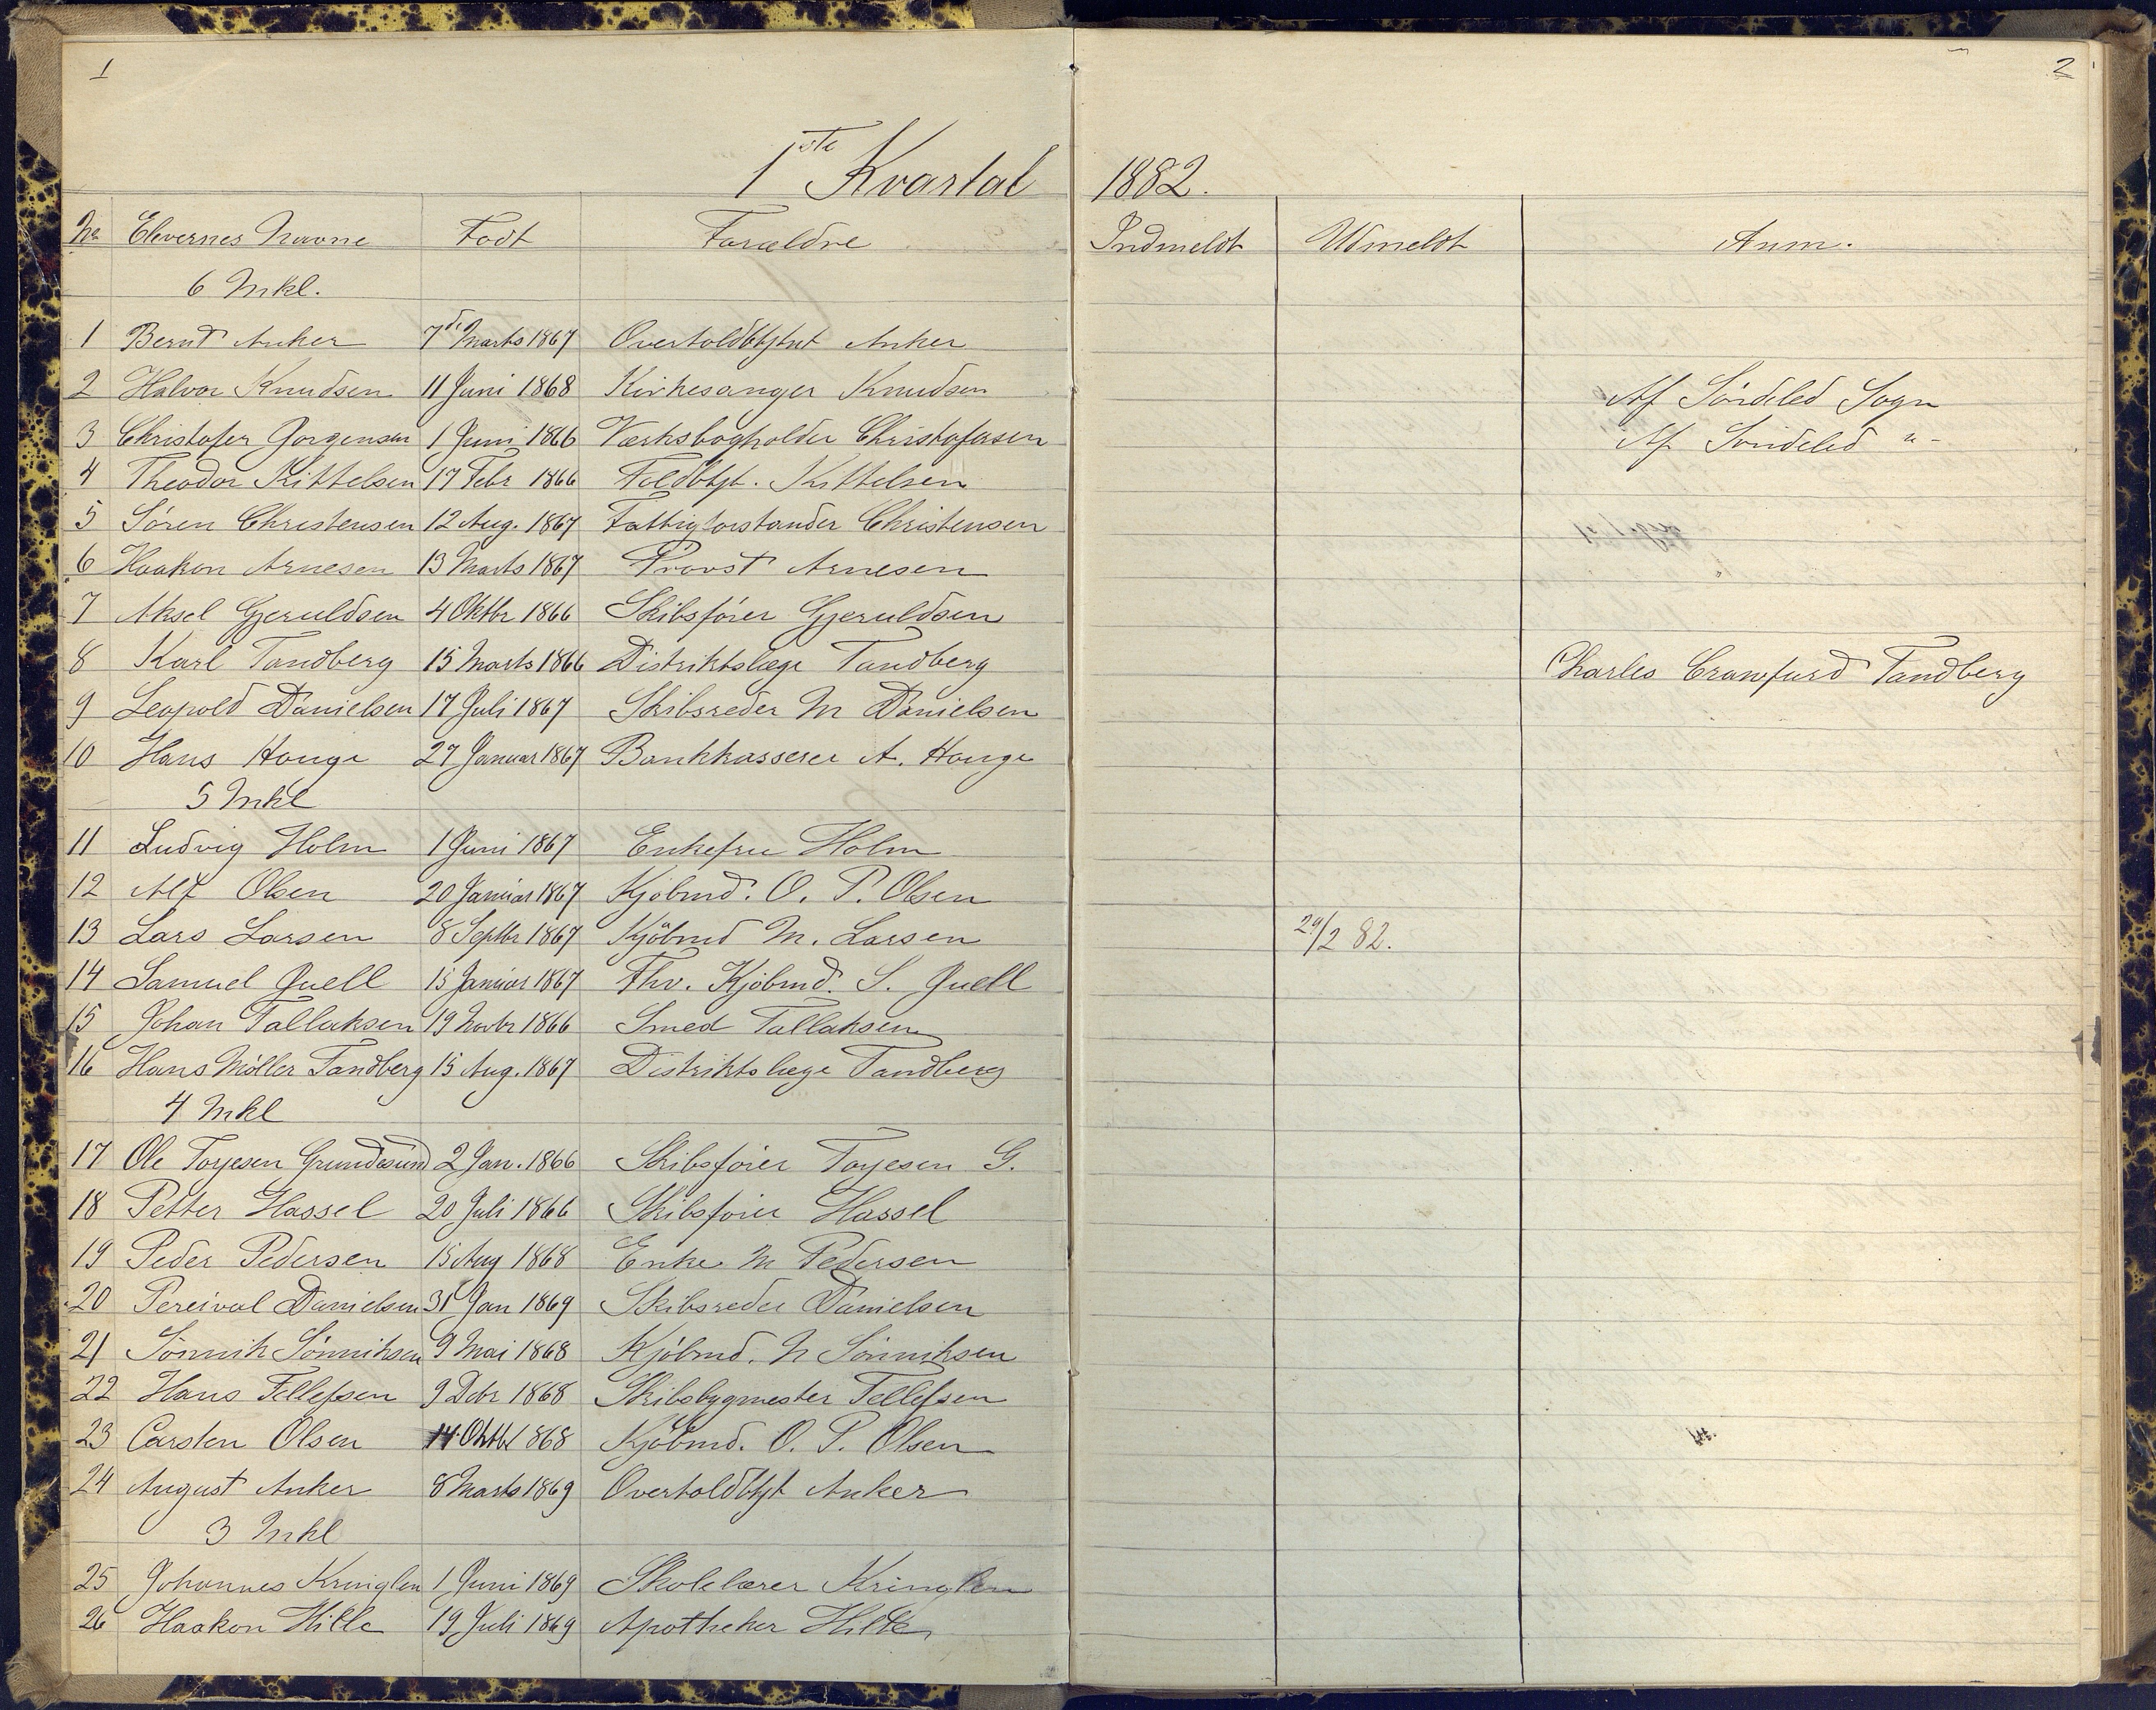 1
2
1ste Kvartal 1882.
No Elevernes Navne Födt Forældre Indmeldt Udmeldt Anm.
6 Mkl.
1 Bernt Anker 7de Marts 1867 Overtoldbtjent Anker
2 Halvor Knudsen 11 Juni 1868 Kirkesanger Knudsen Af Söndeled Sogn
3 Christofer Jorgensen 1 Juni 1866 Værksbogholder Christofersen Af Söndeled "-
4 Theodor Kittelsen 17 Febr 1866 Toldbtjt. Kittelsen
5 Sören Christensen 12 Aug. 1867 Fattigforstander Christensen
6 Haakon Arnesen 13 Marts 1867 Provst Arnesen
7 Aksel Gjeruldsen 4 Oktbr 1866 Skibsförer Gjeruldsen
8 Karl Tandberg 15 Marts 1866 Distriktslæge Tandberg Charles Crawfurd Tandberg
9 Leopold Danielsen 17 Juli 1867 Skibsreder M Danielsen
10 Hans Houge 27 Januar 1867 Bankkasserer A. Houge
5 Mkl
11 Ludvig Holm 1 Juni 1867 Enkefru Holm
12 Alf Olsen 20 Januar 1867 Kjöbmd. O. P. Olsen
13 Lars Larsen 8 Septbr 1867 Kjöbmd M. Larsen 29/2 82.
14 Samuel Juell 15 Januar 1867 Fhv. Kjöbmd. S. Juell
15 Johan Tallaksen 19 Novbr 1866 Smed Tallaksen
16 Hans Möller Tandberg 15 Aug. 1867 Distriktslæge Tandberg
4 Mkl
17 Ole Toyesen Grundesund 2 Jan. 1866 Skibsförer Toyesen G.
18 Petter Hassel 20 Juli 1866 Skibsförer Hassel
19 Peder Pedersen 15 Aug 1868 Enke M Pedersen
20 Percival Danielsen 31 Jan 1869 Skibsreder Danielsen
21 Sönnik Sönniksen 9 Mai 1868 Kjöbmd. N Sönniksen
22 Hans Tellefsen 9 Debr 1868 Skibsbygmester Tellefsen
23 Carsten Olsen 14 Oktbr 1868 Kjöbmd. O. P. Olsen
24 August Anker 8 Marts 1869 Overtoldbtjt Anker
3 Mkl
25 Johannes Kringlen 1 Juni 1869 Skolelærer Kringlen
26 Haakon Hille 19 Juli 1869 Apotheker Hille